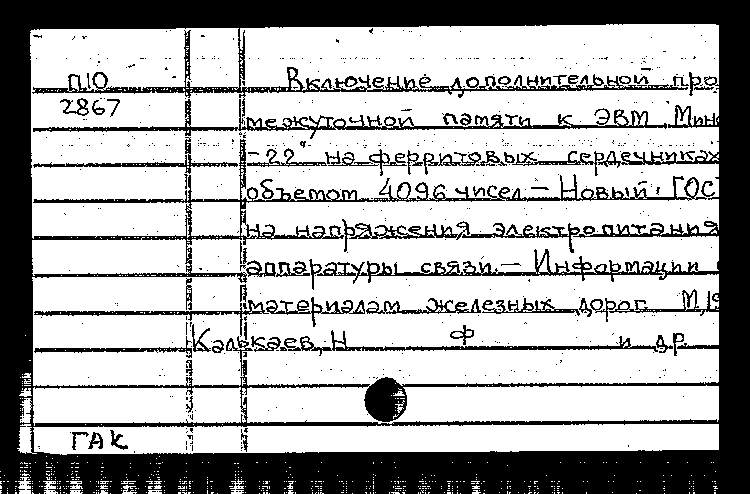 П10 Включение дополнительной про
2867
межуточной памяти к ЭВМ Минс
-22" на ферритовых сердечниках
объемом 4096 чисел — Новый ГОСТ
на напряжения электропитания
аппаратуры связи. — Информации
материалам железных дорог. М, 19
Калькаев, Н Ф и др
ГАК